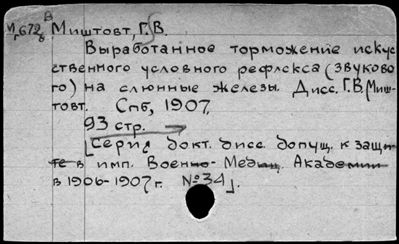 М672
8
В
Миштовт, Г.В.
Выработанное торможение искус
ственного условного рефлекса (звуково
го) на слюнные железы. Дисс. Г.В. Миш-
товт. Спб, 1907,
93 стр.
[Серия докт. дисс. допущ. к защи-
те в имп. Военно-Медиц. Академии
в 1906-1907 г. №34].